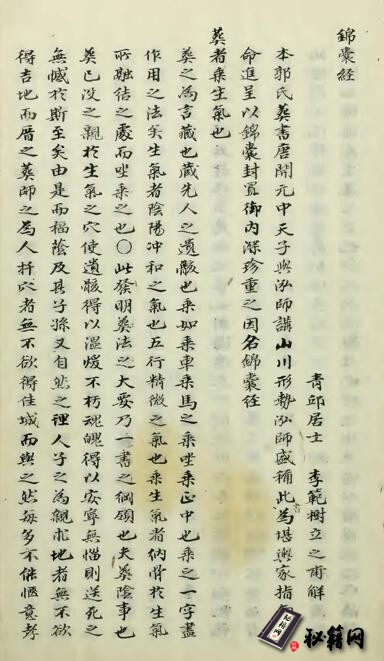 錦囊經
青邱居士 李範樹立之甫解
本郭氏葬書唐開元中天子與泓師講山川形勢泓師盛稱此書為堪輿家指
命進呈以錦囊封置御內深珍重之因名錦囊經
葬者乘生氣也
葬之為言藏也藏先人之遺骸也乘如乘車乘馬之乘坐乘正中也乘之一字盡
作用之法矣生氣者陰陽冲和之氣也五行精微之氣也乘生氣者納骨於生氣
所融結之處而坐乘之也〇此發明葬法之大要乃一書之綱領也夫葬陰事也
葬已沒之親於生氣之穴使遺骸得以溫煖不朽魂魄得以安寧無惱則送死之
無憾於斯至矣由是而福蔭及其子孫又自然之理人子之為親求地者無不欲
得吉地而厝之葬師之為人扦穴者無不欲得佳城而與之然每多不能愜意考
秘籍网
秘籍网